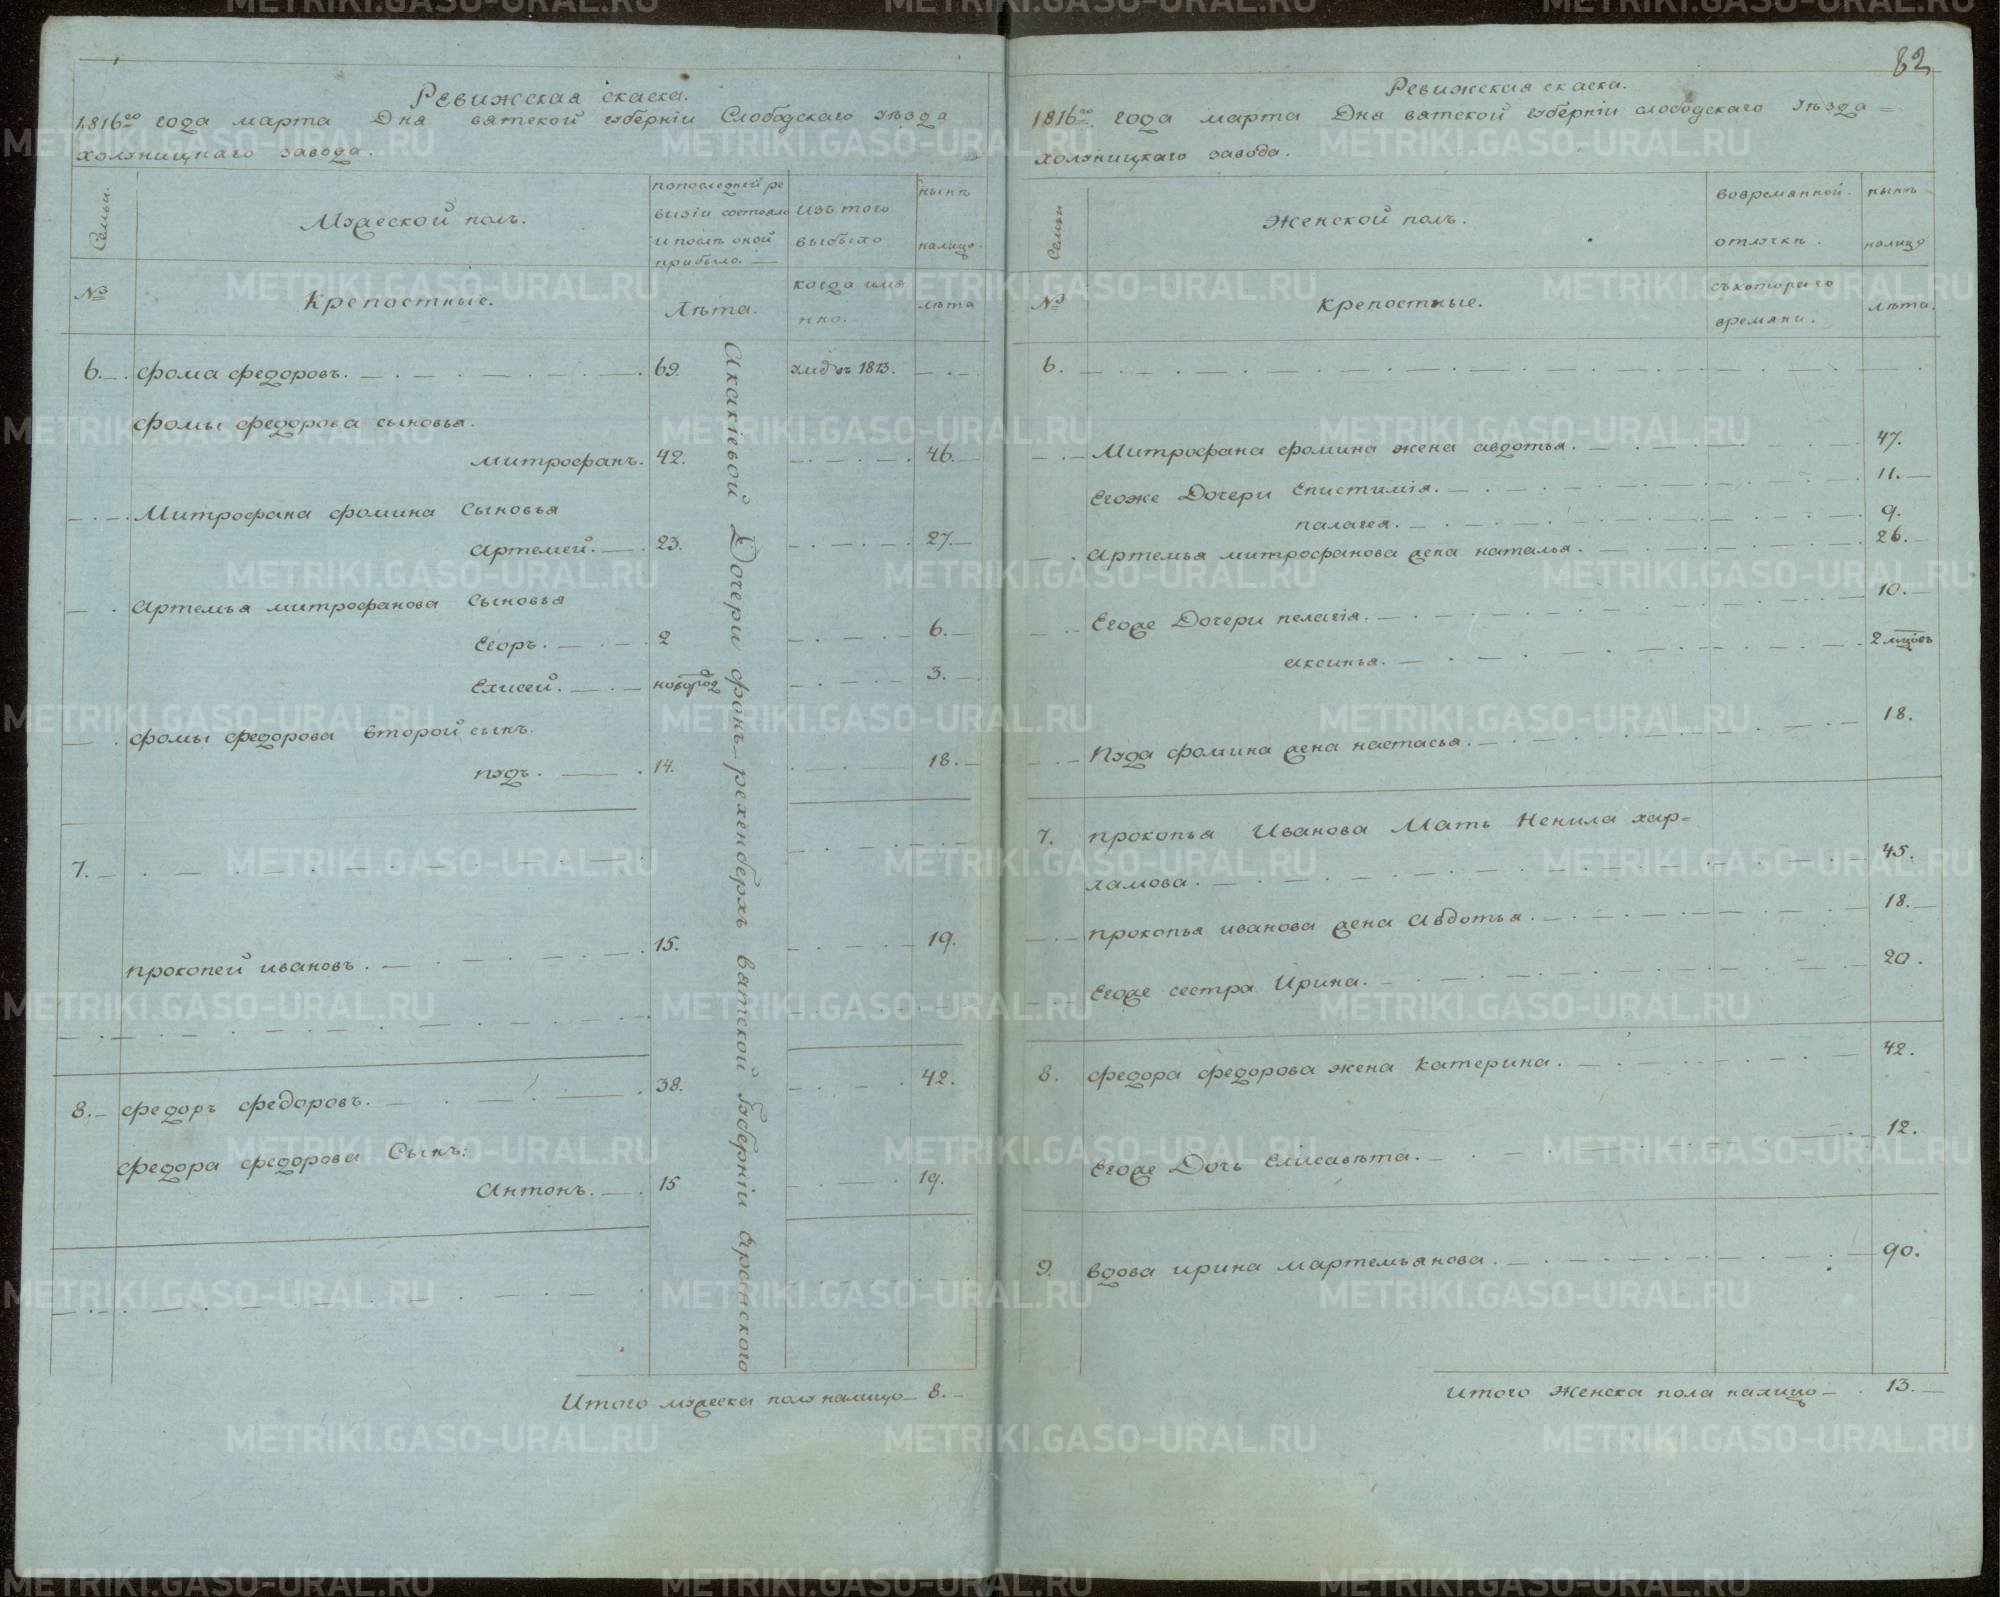 Ревижская скаска.
1816го года марта Дня вятской губерніи Слободскаго уѣзда
холуницкаго завода.
Семьи.
Мужеской полъ.
попоследней ре
визіи состояло
и послѣ оной
прибыло.
изъ того
выбыло
нынѣ
налицо.
№
Крепостные.
Лѣта.
когда имя
нно.
лѣта
6. фома федоровъ. 69. 1813.
фомы федорова сыновья.
митрофанъ. 42. 46.
Митрофана фомина сыновья
Артемей. 23. 27.
Артемья митрофанова сыновья
Егоръ. 2 6.
Елисей. новород 3.
фомы федорова второй сынъ.
пудъ. 14. 18.
7.
прокопей ивановъ. 15. 19.
8. федоръ федоровъ. 38. 42.
федора федорова Сынъ:
Антонъ. 15 19.
Акакіевой Дочери фонъ рехенберхъ вятской губерніи
Итого мужеска полу налицо 8.
82
Ревижская скаска.
1816го года марта Дня вятской губерніи слободскаго уѣзда
холуницкаго завода.
Семьи
Женской полъ.
вовремянной
отлучкѣ.
нынѣ
налицо
№
Крепостные.
съкотораго
времяни.
лѣта.
6.
Митрофана фомина жена авдотья. 47.
Егоже Дочери Епистимія. 11.
палагея. 9.
Артемья митрофанова жена наталья. 26.
Егоже Дочери пелагія. 10.
аксинья. 2 мцовъ
Пуда фомина жена настасья. 18.
7. прокопья Иванова Мать Ненила хар=
ламова. 45.
прокопья иванова жена Авдотья. 18.
Егоже сестра Ирина. 20.
8. федора федорова жена Катерина. 42.
Егоже Дочь Елисавѣта. 12.
9. вдова ирина мартемьянова. 90.
Итого женска пола налицо 13.
METRIKI.GASO-URAL.RU